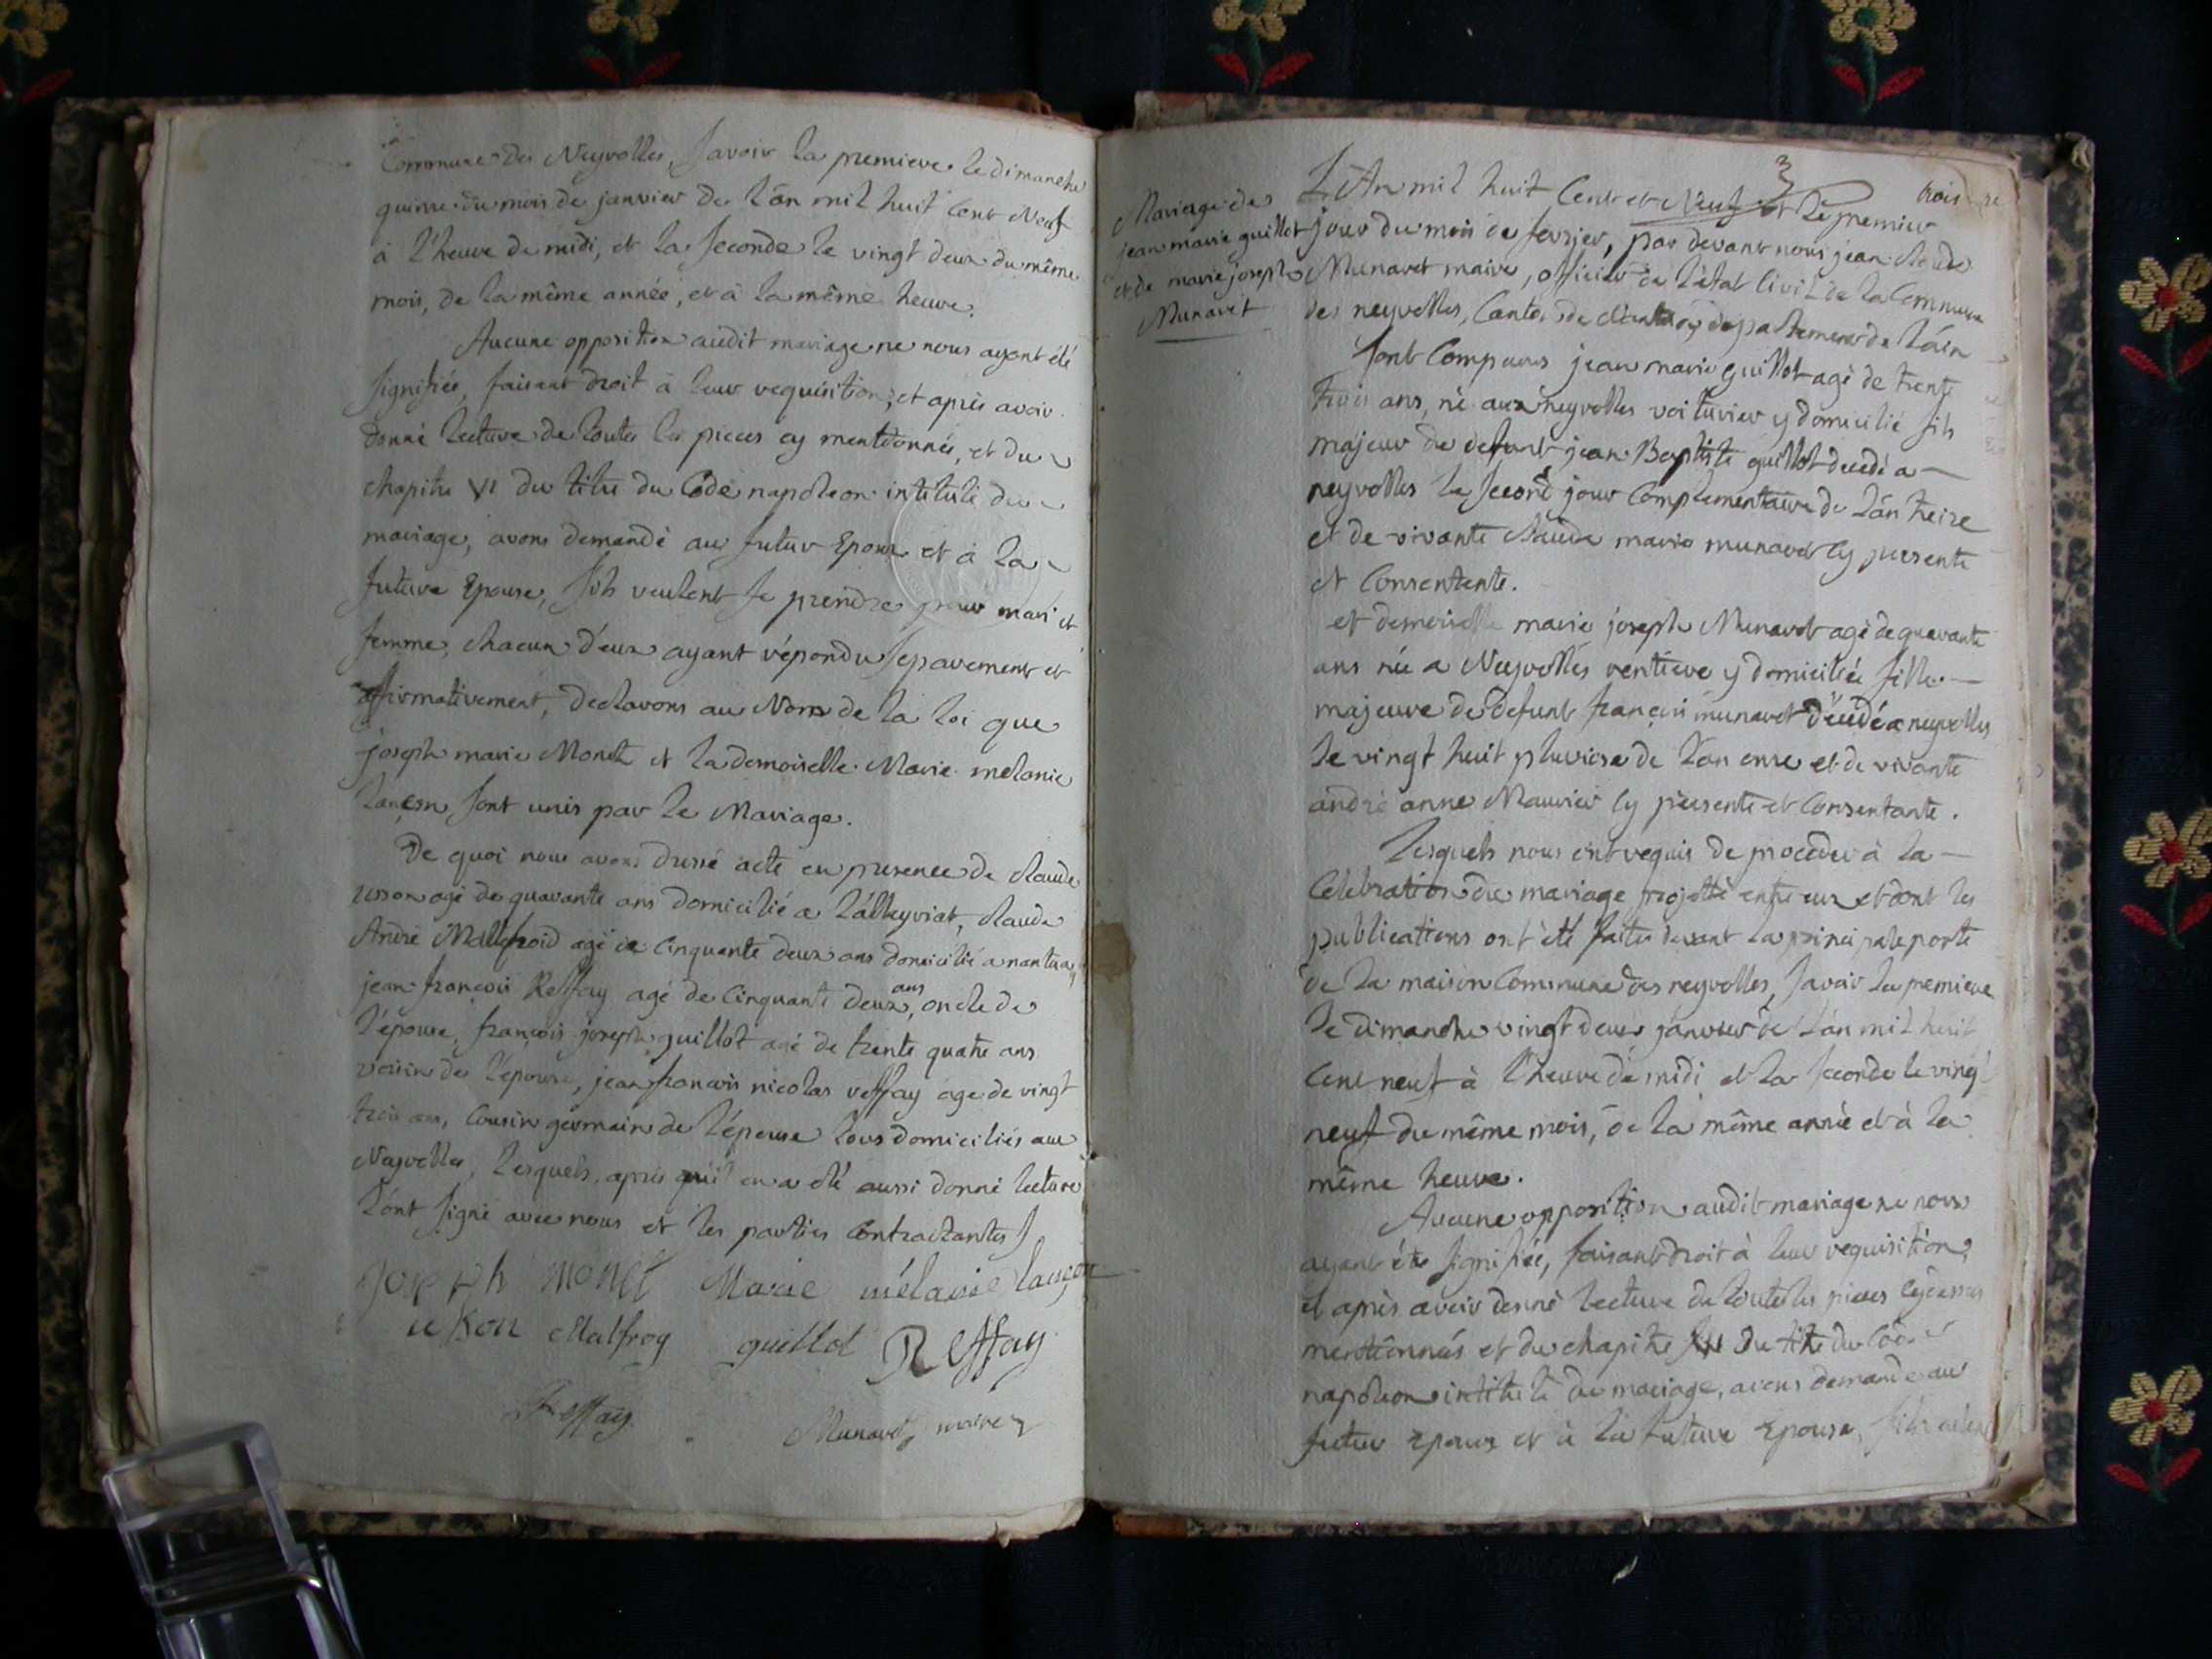 Commune des Neyrolles, savoir la premiere le dimanche
quinze du mois de janvier de l'an mil huit cent neuf
à l'heure de midi, et la seconde le vingt deux du même
mois, de la même année, et à la même heure.
Aucune opposition audit mariage ne nous ayant été
signifiée, faisant droit à leur requisition, et après avoir
donné lecture de toutes les pieces cy mentionnés, et du
chapitre VI du titre du Code napoleon intitulé du
mariage, avons demandé au futur Epoux et à la
future Epouse, s'ils veulent se prendre pour mari et
femme, chacun d'eux ayant répondu separement et
affirmativement, declarons au Nom de la loi que
joseph marie Monet et la demoiselle Marie melanie
lançon sont unis par le Mariage.
De quoi nous avons dressé acte en presence de Claude
agé de quarante ans domicilié a Claude
André Mallfroid agé de Cinquante deux ans domicilié a nantua
jean françois Reffay agé de Cinquante deux ans, oncle de
l'épouse, françois joseph guillot agé de trente quatre ans
voisin de l'épouse, jean francois nicolas reffay age de vingt
trois ans, Cousin germain de l'épouse tous domiciliés aux
Neyrolles, lesquels, après qu'il en a été aussi donné lecture
l'ont signé avec nous et les parties Contractantes
Joseph monet Marie mélanie lançon
Malfroy guillot Reffay
Reffay Munaret, maire
3
trois
Mariage de
jean marie guillot
et de marie joseph
Munaret
L'An mil huit Cent et Neuf et le premier
jour du mois de fevrier, par devant nous jean Claude
Munaret maire, officier de l'état Civil de la Commune
des neyrolles, Canton de Nantua, departement de l'ain
sont Comparus jean marie guillot agé de trente
trois ans, né aux neyrolles voiturier y domicilié fils
majeur de defunt jean Baptiste guillot decedé a
neyrolles le second jour Complementaire de l'an treize
et de vivante Claude marie munaret cy presente
et Consentente.
et demoiselle marie joseph Munaret agé de quarante
ans née a Neyrolles rentiere y domiciliée fille
majeure de defunt françois munaret decedé a neyrolles
le vingt huit pluviose de l'an onze et de vivante
andré anne Mauvier cy presente et Consentante.
Lesquels nous ont requis de proceder à la
Celebration du mariage projetté entre eux et dont les
publications ont été faites devant la principale porte
de la maison Commune des neyrolles, savoir la premiere
le dimanche vingt deux janvier de l'an mil huit
Cent neuf à l'heure de midi et la seconde le vingt
neuf du même mois, de la même année et à la
même heure.
Aucune opposition audit mariage ne nous
ayant été signifiée, faisant droit à leur requisition,
et après avoir donné lecture de toutes les pieces cy dessus
mentionnés et du chapitre du titre du Code
napoleon intitulé du mariage, avons demandé au
futur Epoux et à la future Epouse, s'ils veulent